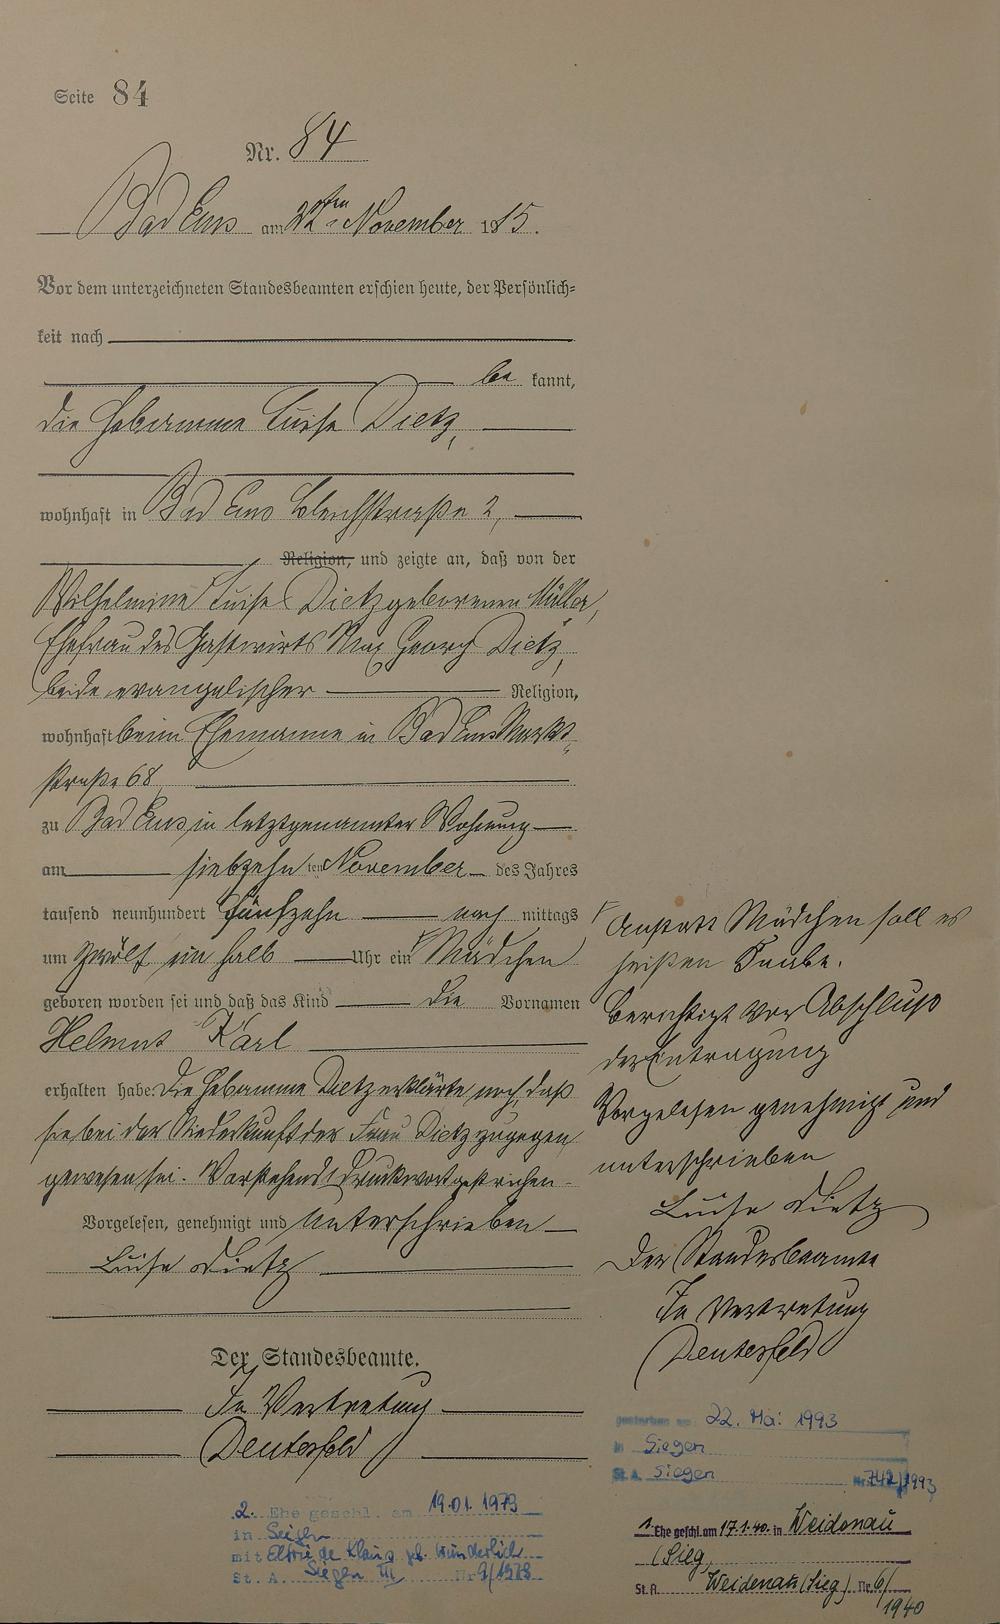 Seite 84
Nr. 84
Bad Ems am 22ten November 1915.
Vor dem unterzeichneten Standesbeamten erschien heute, der Persönlich=
keit nach
be kannt,
die Hebamme Luise Dietz,
wohnhaft in Bad Ems Bleichstraße 2,
Religion, und zeigte an, daß von der
Wilhelmine Luise Dietz geborenen Müller,
Ehefrau des Gastwirts Max Georg Dietz,
beide evangelischer Religion,
wohnhaft beim Ehemanne in Bad Ems Markt-
straße 68,
zu Bad Ems in letztgenannter Wohnung
am siebzehn ten November des Jahres
tausend neunhundert fünfzehn nach mittags
um zwölf ein halb Uhr ein Mädchen
geboren worden sei und daß das Kind die Vornamen
Helmut Karl
erhalten habe. Die Hebamme Dietz erklärte noch, daß
sie bei der Niederkunft der Frau Dietz zugegen
gewesen sei. Vorstehend 1 Druckwort gestrichen.
Vorgelesen, genehmigt und unterschrieben
Luise Dietz
Der Standesbeamte.
In Vertretung
2. Ehe geschl. am 19.01.1973
in Seigen
mit Elfriede Klaus geb. Wunderlich
St. A. Siegen III Nr.
Anstatt Mädchen soll es
heißen Knabe.
Berichtigt vor Abschluß
der Eintragung
Vorgelesen genehmigt und
unterschrieben
Luise Dietz
Der Standesbeamte
In Vertretung
gestorben am 22. Mai 1993
in Siegen
St. A. Siegen Nr. 742/1993
1. Ehe geschl. am 17.1.40. in Weidenau
(Sieg)
St. A. Weidenau (Sieg) Nr. 6/
1940